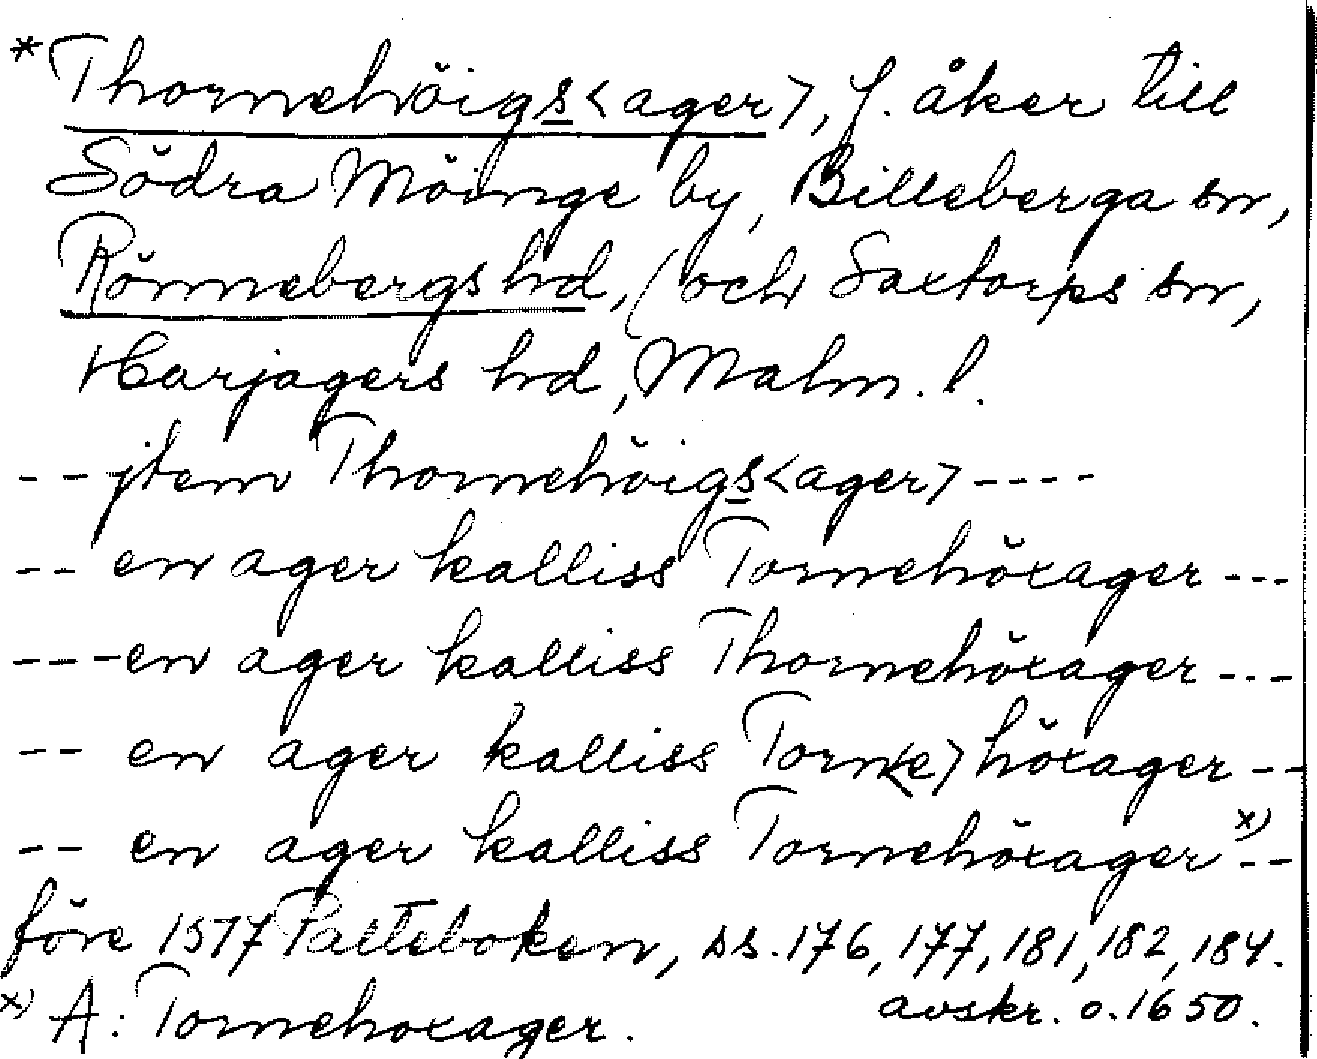 *Thornehöigs<ager>, f. åker till
Södra Möinge by, Billeberga sn,
Rönnebergs hd, (och Saxtorps sn,
Harjagers hd, Malm. l.
-- jtem Thornehöigs<ager> ----
-- en ager kalliss Tornehöxager ---
--- en ager kalliss Thornehöxager ---
-- en ager kalliss Torn<e>höxager --
-- en ager kalliss Tornehöxager x) --
före 1577 Palteboken, ss. 176, 177, 181, 182, 184.
avskr. o. 1650.
x) A: Tornehoxager.